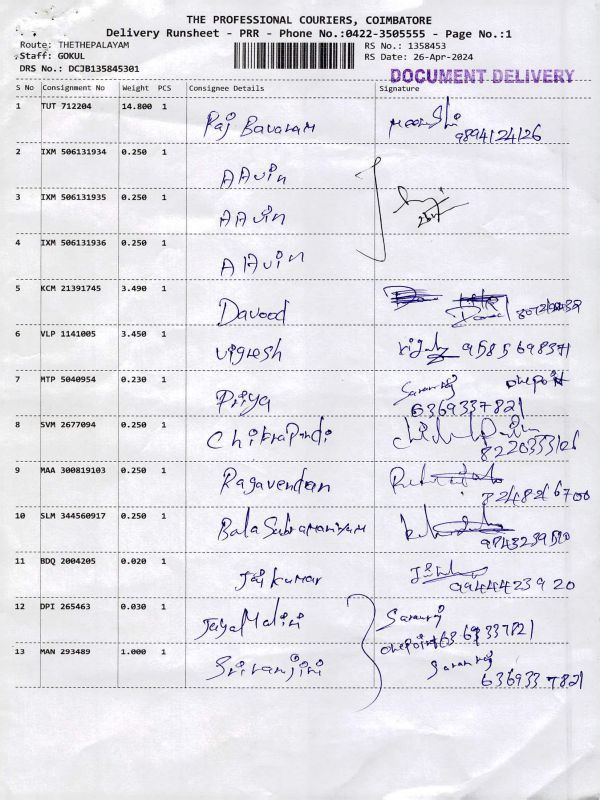 THE PROFESSIONAL COURIERS, COIMBATORE
Delivery Runsheet - PRR - Phone No.:0422-3505555 - Page No.:1
Route: THETHEPALAYAM
RS No.: 1358453
Staff: GOKUL
RS Date: 26-Apr-2024
DRS No.: DCJB135845301
DOCUMENT DELIVERY
S No Consignment No Weight PCS Consignee Details Signature
1 TUT 712204 14.800 1 Raj Bavaram
9894124126
2 IXM 506131934 0.250 1 AAvin
3 IXM 506131935 0.250 1 AAvin
4 IXM 506131936 0.250 1 AAvin
5 KCM 21391745 3.490 1 Davood
6 VLP 1141005 3.450 1 Vignesh 9585698371
7 MTP 5040954 0.230 1 Priya Saranraj onepoint
6369337821
8 SVM 2677094 0.250 1 ChitraPandi
8220333126
9 MAA 300819103 0.250 1 Ragavendan
10 SLM 344560917 0.250 1 BalaSubramaniyam
11 BDQ 2004205 0.020 1 Jaikumar
9944423920
12 DPI 265463 0.030 1 JayaMalini Saranraj
onepoint 6369337821
13 MAN 293489 1.000 1 Sriranjini Saranraj
6369337821